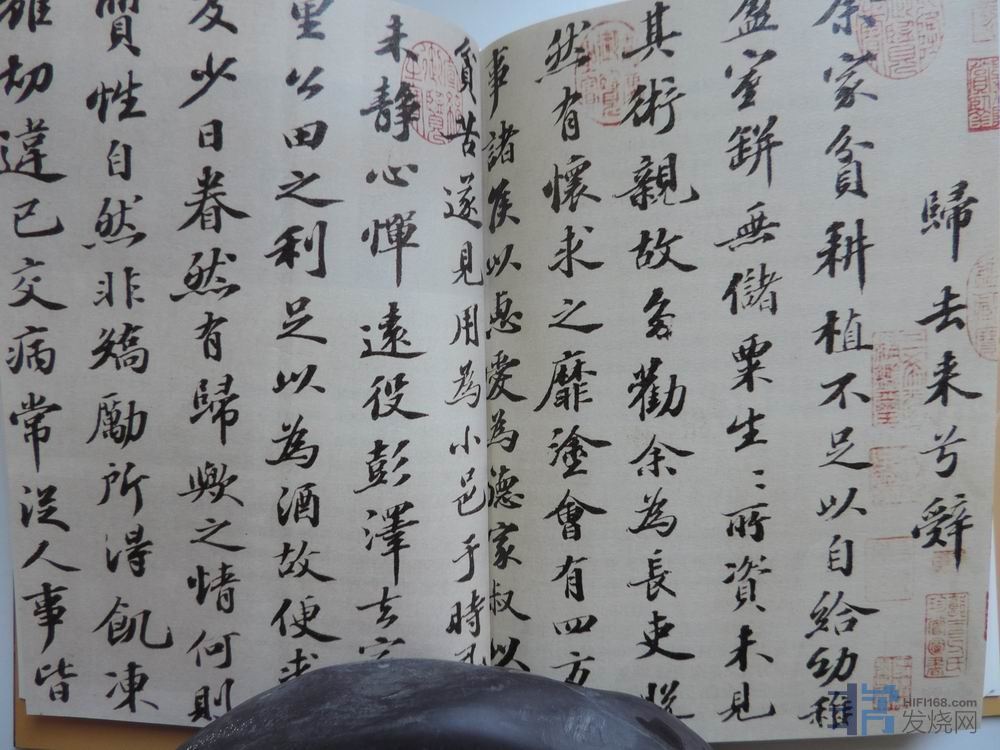 歸去来兮辭
余家貧耕植不足以自給幼稚
盈室缾無儲粟生〻所資未見
其術親故多勸余為長吏脱
然有懷求之靡塗會有四方
事諸侯以惠愛為德家叔以
貧苦遂見用為小邑于時風
未静心憚遠役彭澤去家
里公田之利足以為酒故便求
及少日眷然有歸歟之情何則
質性自然非矯勵所得飢凍
雖切違已交病常從人事皆
HIFI168.com
发烧网